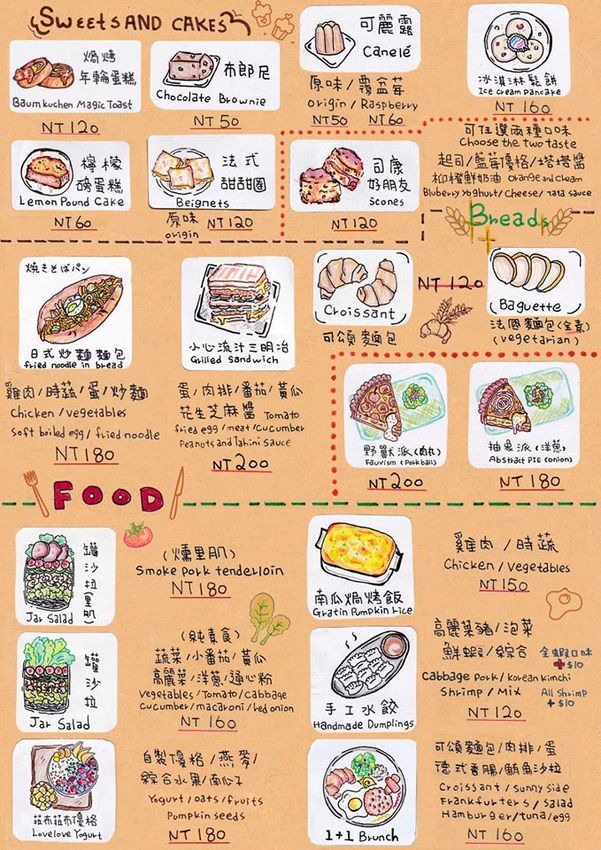 SWEETS AND CAKES
焗烤
年輪蛋糕
Baumkuchen Magic Toast
NT 120
布郎尼
Chocolate Brownie
NT 50
可麗露
Canelé
原味/覆盆莓
origin / Raspberry
NT 50 NT 60
冰淇淋鬆餅
Ice cream pancake
NT 160
檸檬
磅蛋糕
Lemon Pound Cake
NT 60
法式
甜甜圈
Beignets
原味
origin
NT 120
司康
好朋友
Scones
NT 120
可任選兩種口味
Choose the two taste
起司/藍莓優格/塔塔醬
柳橙鮮奶油 orange and Cream
Bluberry Yoghurt/Cheese/Tata sauce
Breads
焼きそばパン
日式炒麵麵包
fried noodle in bread
雞肉/時蔬/蛋/炒麵
Chicken / vegetables
Soft boiled egg / fried noodle
NT 180
小心流汁三明治
Grilled sandwich
蛋/肉排/番茄/黃瓜
花生芝麻醬 Tomato
fried egg / meat / cucumber
Peanots and Tahini sauce
NT 200
Croissant
可頌麵包
NT 120
Baguette
法國麵包(全素)
(vegetarian)
野獸派(肉丸)
Fauvism (Porkball)
NT 200
抽象派(洋蔥)
Abstract PIE (onion)
NT 180
FOOD
罐沙拉(里肌)
Jar Salad
(燻里肌)
Smoke pork tenderloin
NT 180
罐沙拉
Jar Salad
(純素食)
蔬菜/小番茄/黃瓜
高麗菜/洋蔥/通心粉
Vegetables / Tomato / Cabbage
cucumber / macaroni / led onion
NT 160
菈布菈布優格
Lovelove Yogurt
自製優格/燕麥/
綜合水果/南瓜子
Yogurt / oats / fruits
Pumpkin seeds
NT 180
南瓜焗烤飯
Gratin Pumpkin rice
雞肉/時蔬
Chicken / Vegetables
NT 150
手工水餃
Handmade Dumplings
高麗菜豬/泡菜
鮮蝦/綜合 全蝦口味
+$10
Cabbage Pork / Korean kimchi
Shrimp / Mix All Shrimp
+$10
NT 120
1+1 Brunch
可頌麵包/肉排/蛋
德式香腸/鮪魚沙拉
Croissant / sunny side
Frankfurters / salad
Hamburger / tuna / egg
NT 160